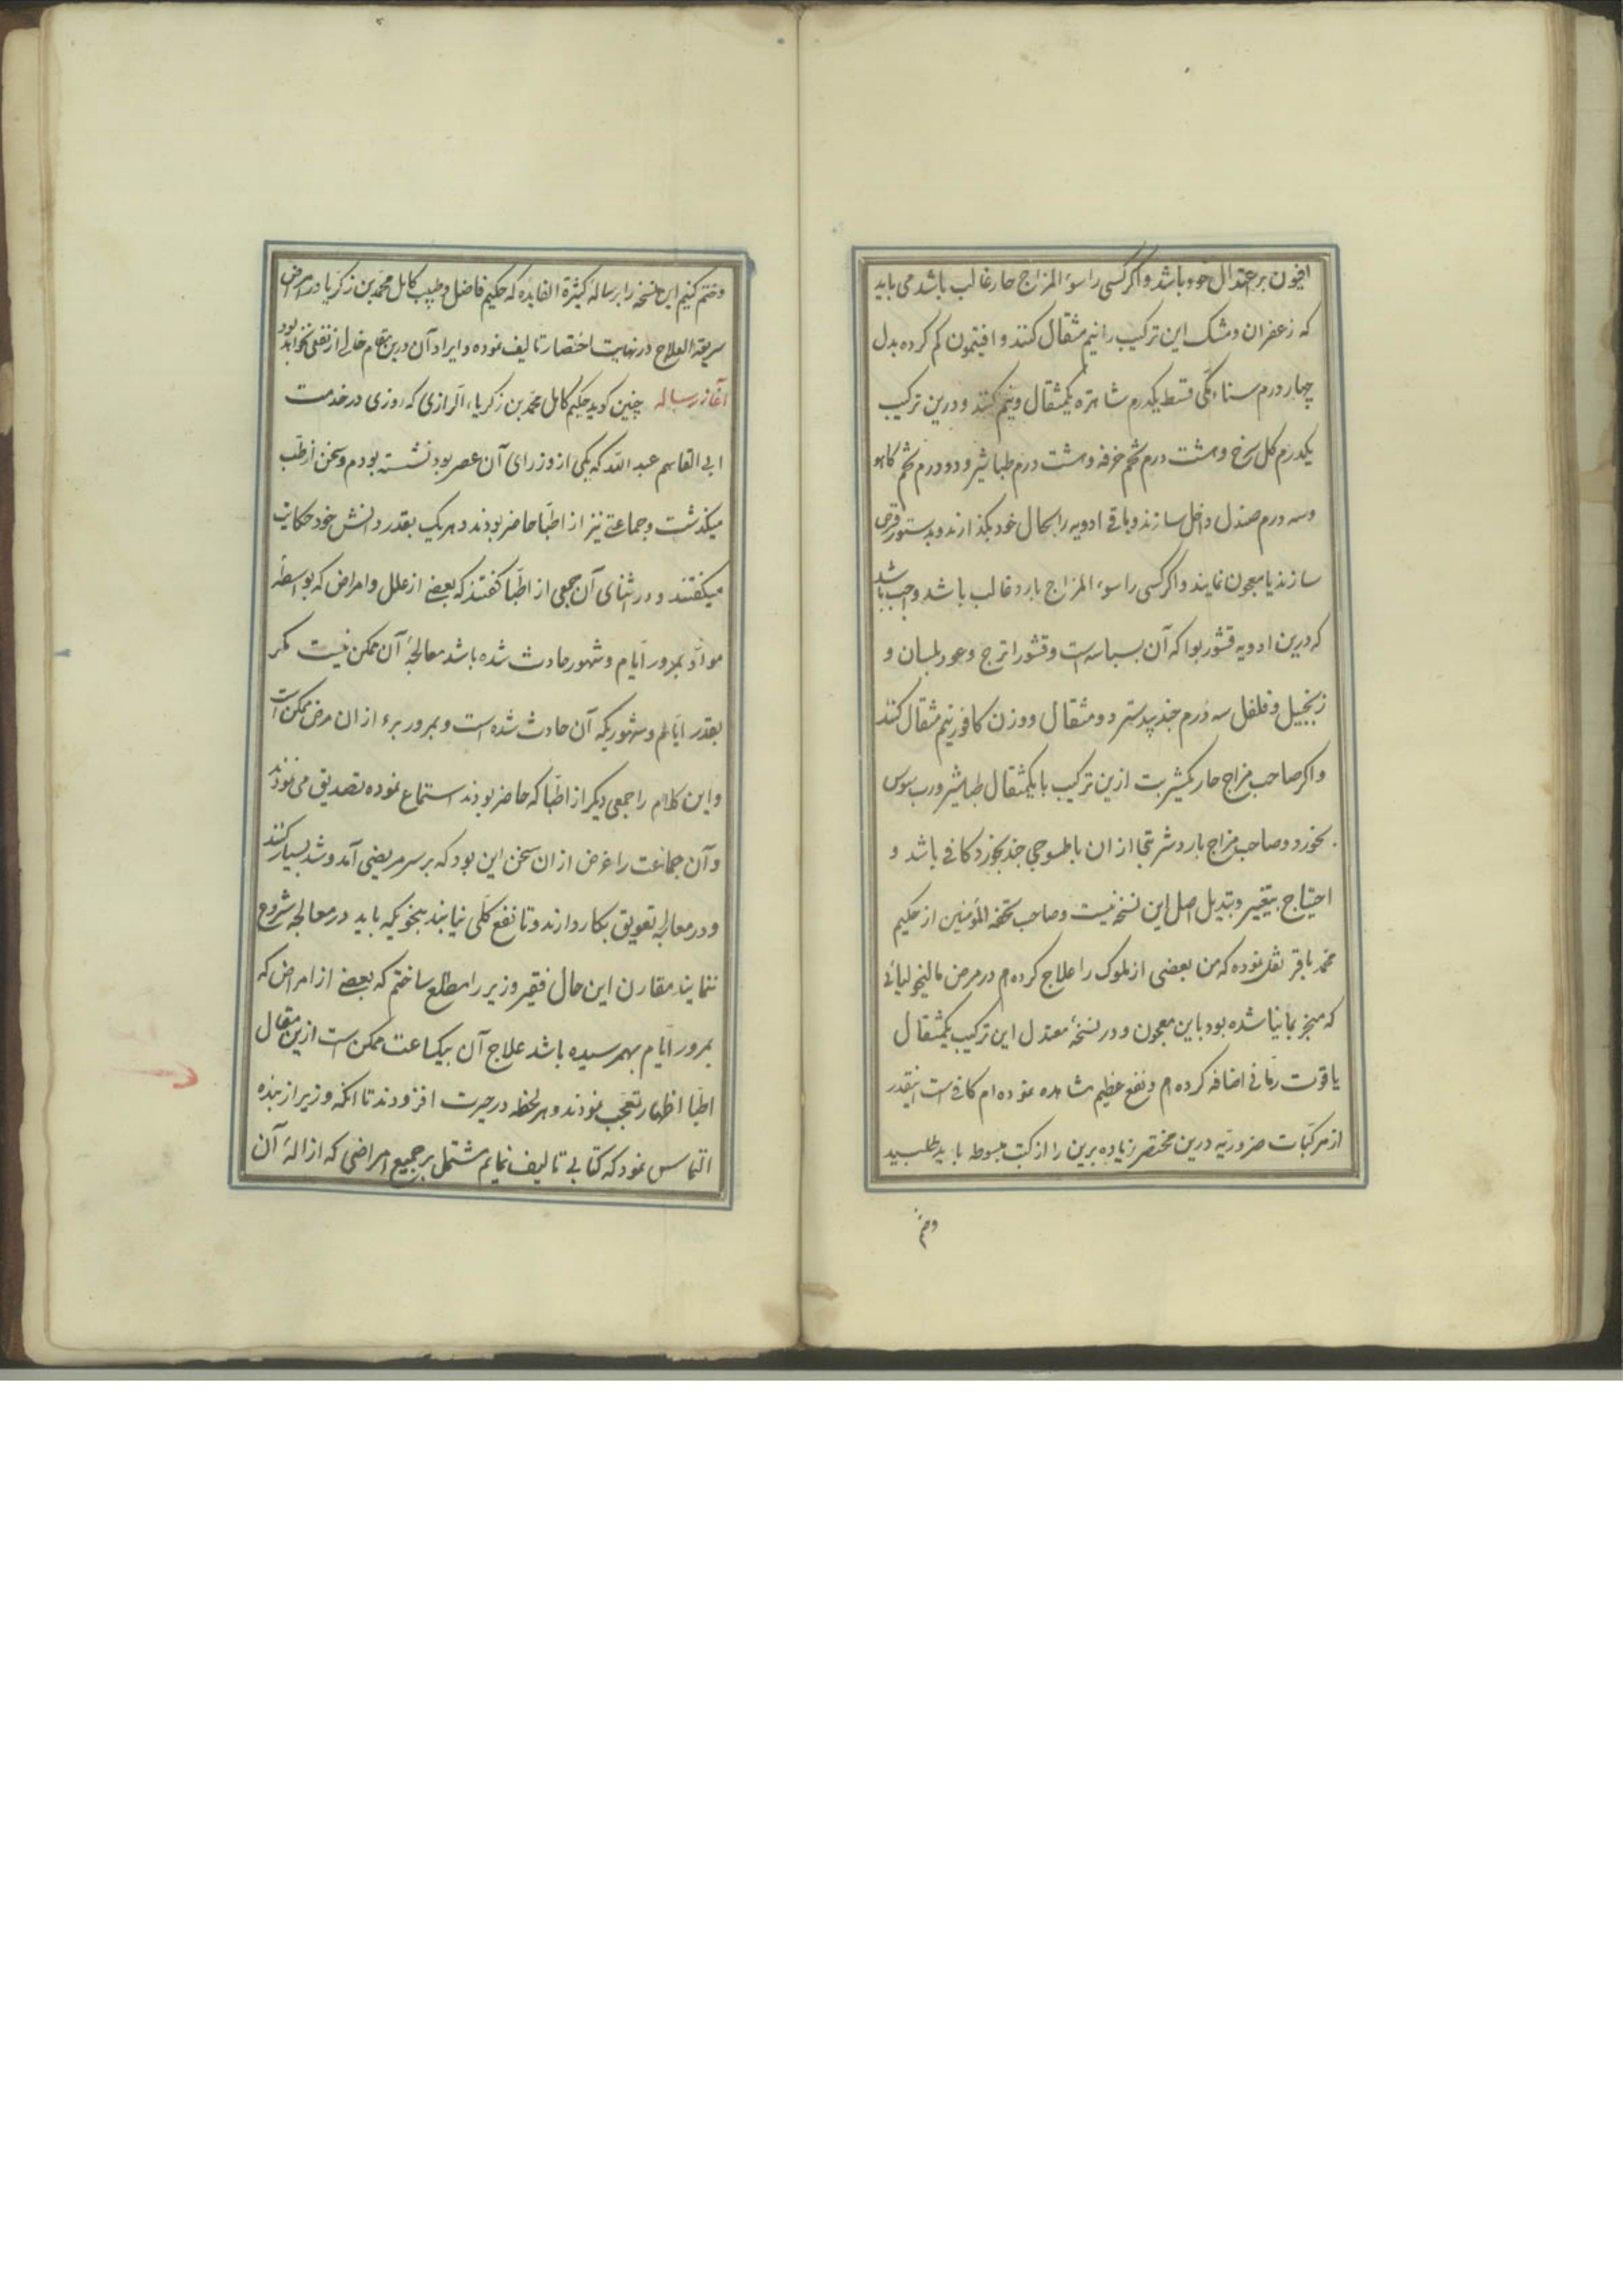 افیون بر اعتدال خود باشد و اگر کسی را سوء المزاج حار غالب باشد می باید
که زعفران و مشک این ترکیب را نیم مثقال کنند و افتیمون کم کرده بدل
چهار درم سناء مکی قسط یکدرم شاهتره یکمثقال و نیم کنند و درین ترکیب
یکدرم کل سرخ و هشت درم تخم خرفه و هشت درم طباشیر و دو درم تخم کاهو
و سه درم صندل داخل سازند و باقی ادویه را بحال خود بکذارند و بدستور قرص
سازند یا معجون نمایند و اگر کسی را سوء المزاج بارد غالب باشد واجب باشد
که درین ادویه قشور بوا که آن بسباسه است و قشور اترج و عود بلسان و
زنجبیل و فلفل سه درم جندبیدستر دو مثقال و وزن کافور نیم مثقال کنند
و اکر صاحب مزاج حار یکشربت ازین ترکیب با یکمثقال طباشیر و رب سوس
بخورد و صاحب مزاج بارد شربتی از ان با طسوجی جند بخورد کافی باشد و
احتیاج بتغییر و تبدیل اصل این نسخه نیست و صاحب تحفه المؤمنین از حکیم
محمد باقر نقل نموده که من بعضی از ملوک را علاج کرده ام در مرض مالیخولیائی
که منجر بمانیا شده بود باین معجون و در نسخهٔ معتدل این ترکیب یکمثقال
یاقوت رمّانی اضافه کرده ام و نفع عظیم مشاهده نموده ام کافی است اینقدر
از مرکّبات ضروریه درین مختصر زیاده برین را از کتب مبسوطه باید طلبید
و ختم
و ختم کنیم این نسخه را برساله کثیرة الفایده که حکیم فاضل و طبیب کامل محمد بن زکریا در امراض
سریعة العلاج در نهایت اختصار تالیف نموده و ایراد آن درین مقام خالی از نفعی نخواهد بود
آغاز رساله چنین کوید حکیم کامل محمد بن زکریاء الرازی که روزی در خدمت
ابی القاسم عبد الله که یکی از وزرای آن عصر بود نشسته بودم و سخن از طب
میکذشت و جماعتی نیز از اطبّا حاضر بودند و هر یک بقدر دانش خود حکایت
میکفتند و در اثنای آن جمعی از اطبّا کفتند که بعضی از علل و امراض که بواسطهٔ
موادّ بمرور ایّام و شهور حادث شده باشد معالجهٔ آن ممکن نیست مکر
بقدر ایّام و شهوریکه آن حادث شده است و بمرور برء از ان مرض ممکن است
و این کلام را جمعی دیکر از اطبّا که حاضر بودند استماع نموده تصدیق می نمودند
و آن جماعت را غرض از ان سخن این بود که بر سر مریضی آمد و شد بسیار کنند
و در معالجه تعویق بکار دارند و تا نفع کلّی نیابند بنحویکه باید در معالجه شروع
ننمایند مقارن این حال فقیر وزیر را مطلع ساختم که بعضی از امراض که
بمرور ایّام بهمرسیده باشد علاج آن بیکساعت ممکن است ازین مقال
اطبّا اظهار تعجّب نمودند و هر لحظه در حیرت افزودند تا انکه وزیر از بنده
التماس نمود که کتابی تالیف نمایم مشتمل بر جمیع امراضی که ازالهٔ آن